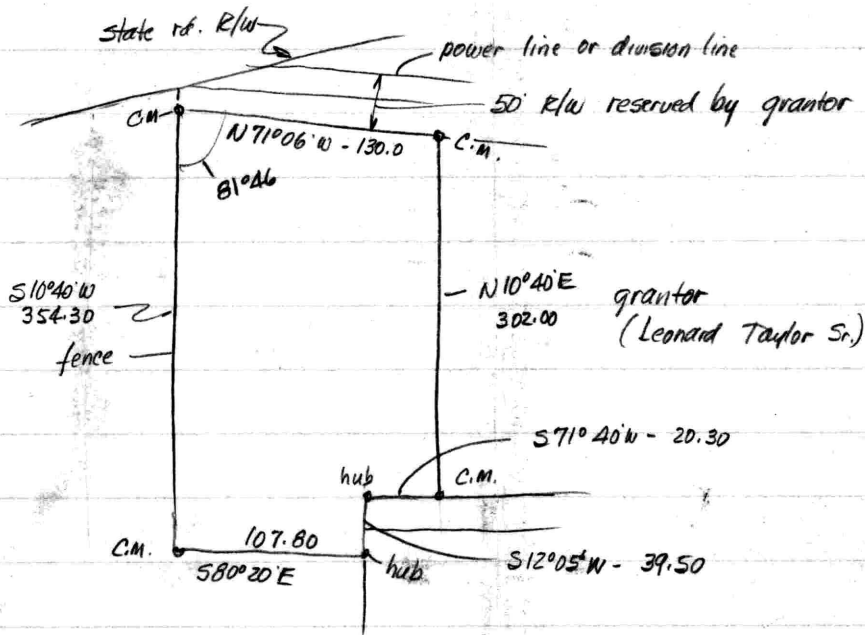 state rd. R/W
power line or division line
50' R/W reserved by grantor
CM
N 71°06' W - 130.0
C.M.
81°46
S10°40'W
354.30
fence
N10°40'E
302.00
grantor
(Leonard Taylor Sr.)
S71°40'W - 20.30
hub
C.M.
C.M.
107.80
S80°20'E
hub
S12°05'W - 39.50